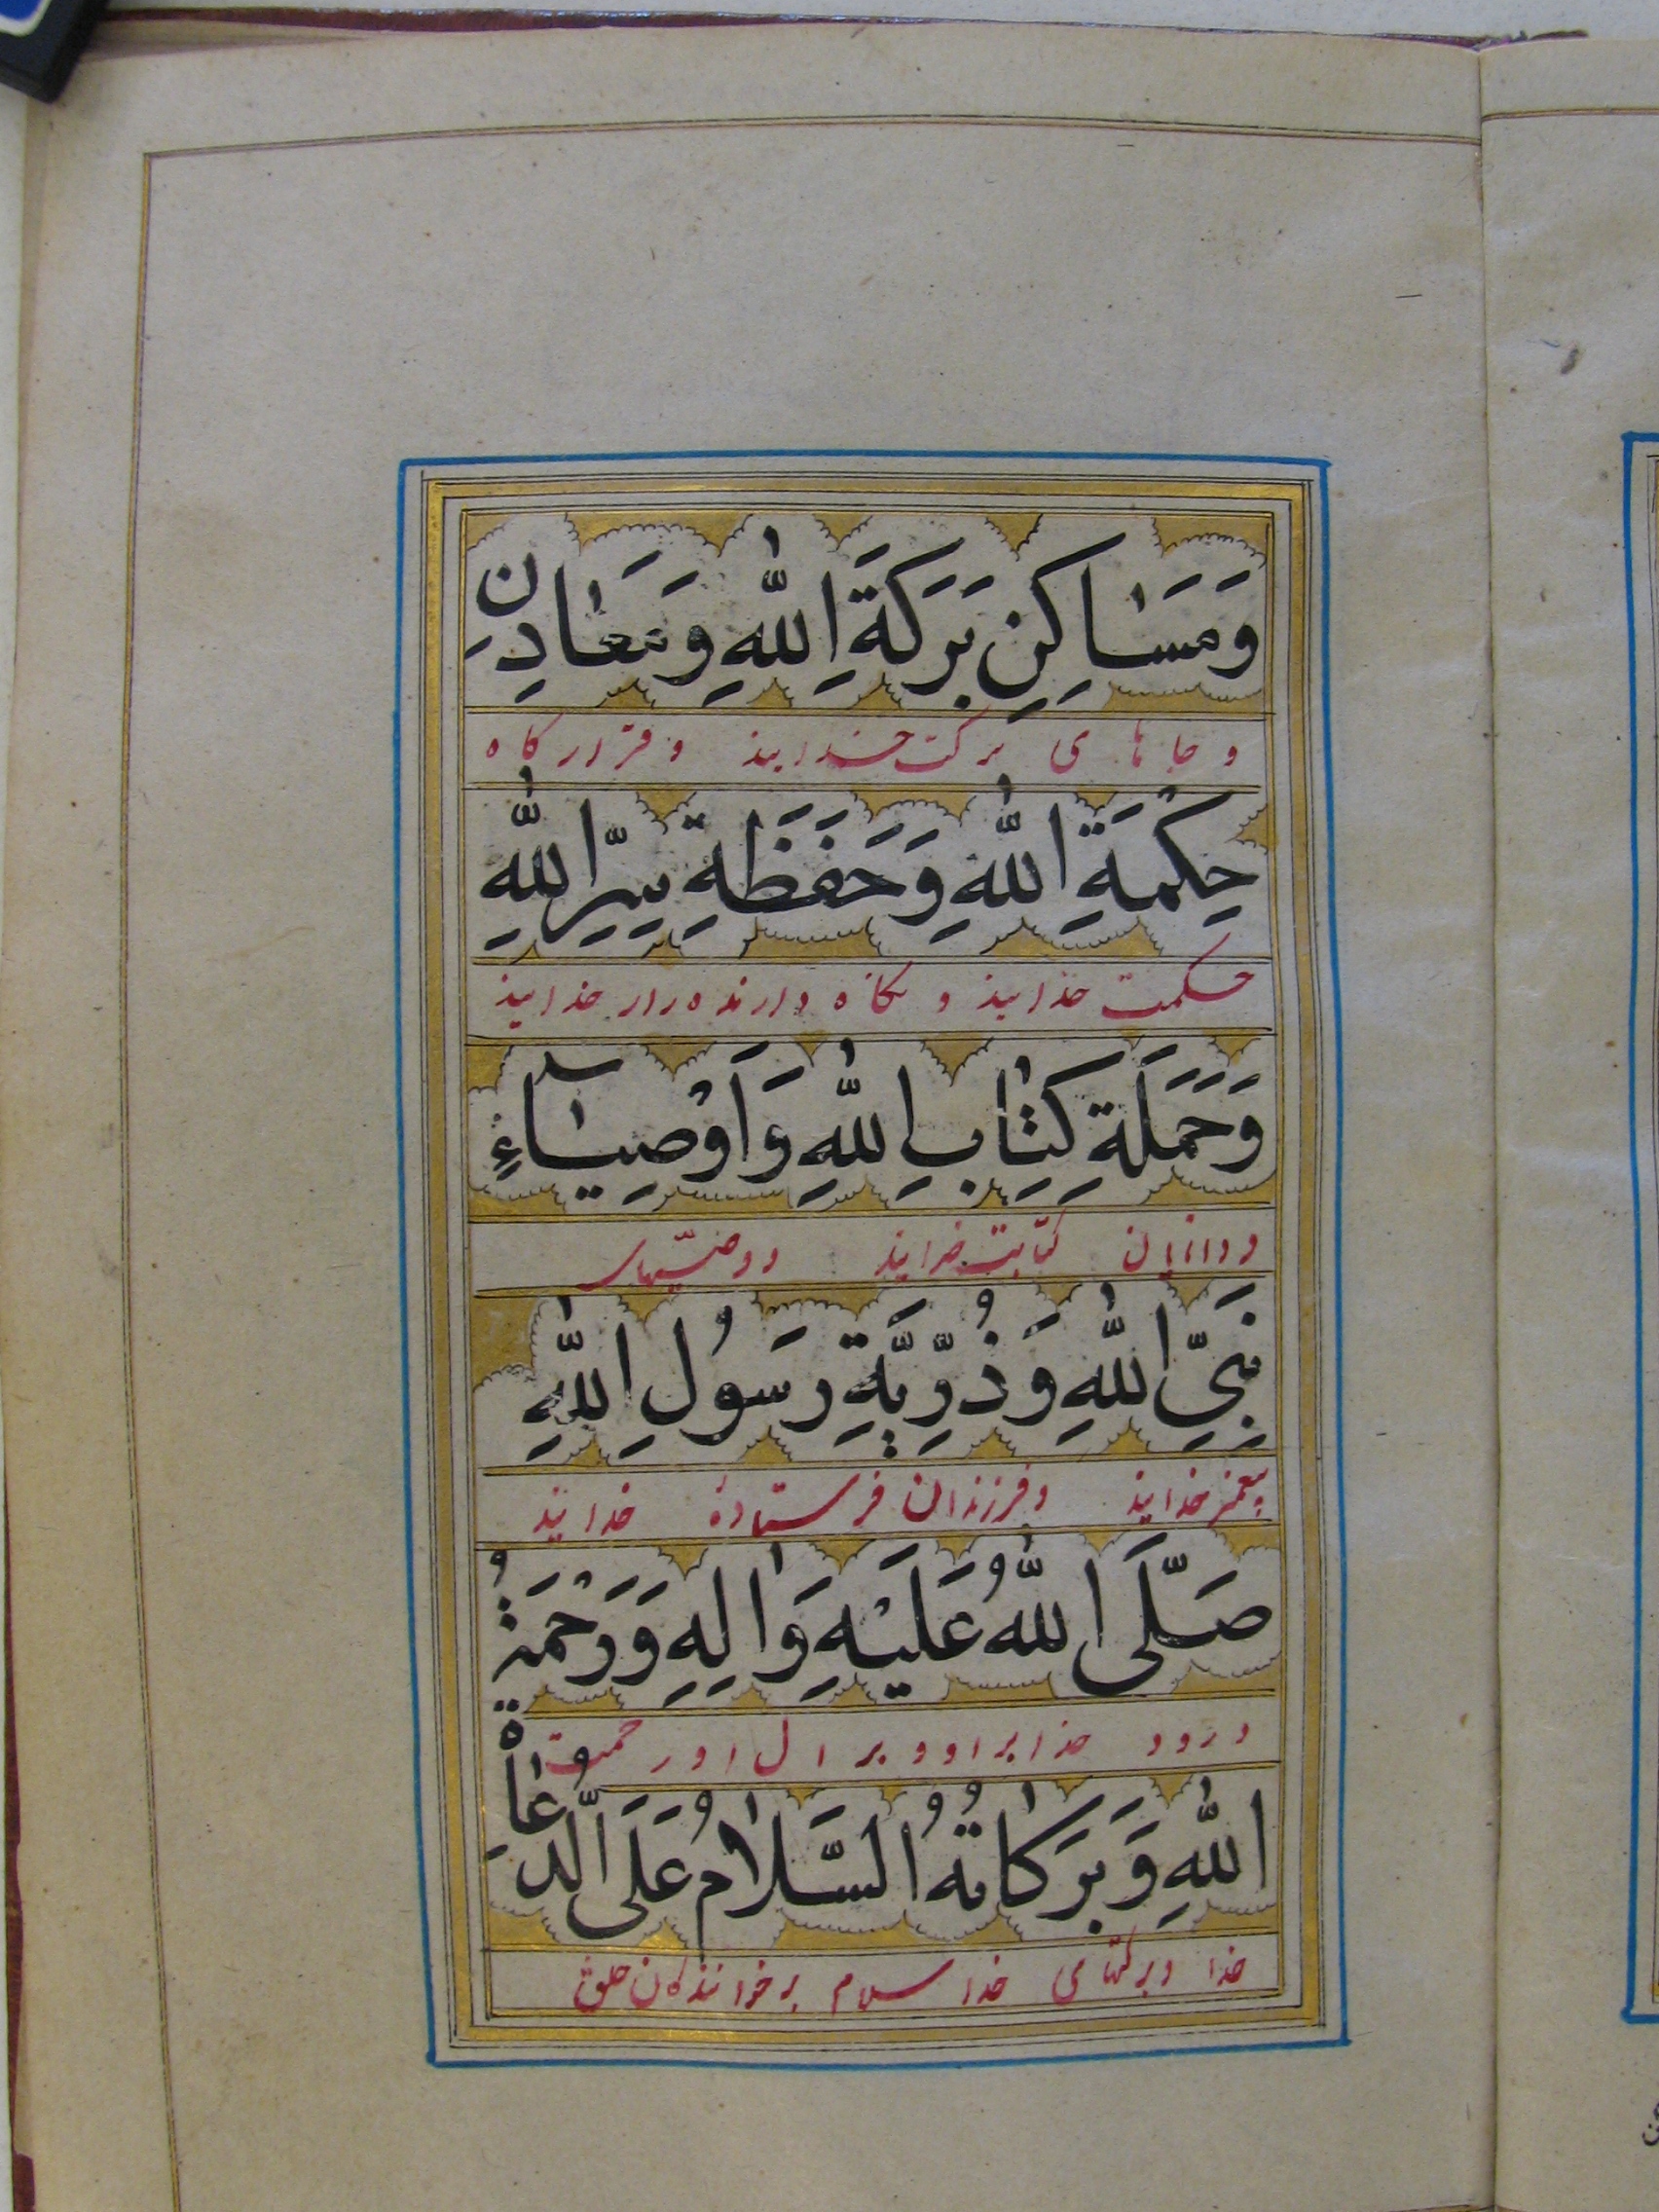 وَمَسَاكِنِ بَرَكَةِ اللهِ وَمَعَادِنِ
و جاهای برکت خدایند و قرار کاه
حِكْمَةِ اللهِ وَحَفَظَةِ سِرِّ اللهِ
حکمت خدایند و نکاه دارنده راز خدایند
وَحَمَلَةِ كِتَابِ اللهِ وَاَوْصِيَآءِ
و دانایان کتابت خدایند و وصیّهای
نَبِيِّ اللهِ وَذُرِّيَّةِ رَسُولِ اللهِ
پیغمبر خدایند و فرزندان فرستادهٔ خدایند
صَلَّى اللهُ عَلَيْهِ وَالِهِ وَرَحْمَةُ
درود خدا بر او و بر ال او رحمت
اللهِ وَبَرَكَاتُهُ السَّلَامُ عَلَى الدُّعَاةِ
خدا و برکتهای خدا سلام بر خوانندکان خلق